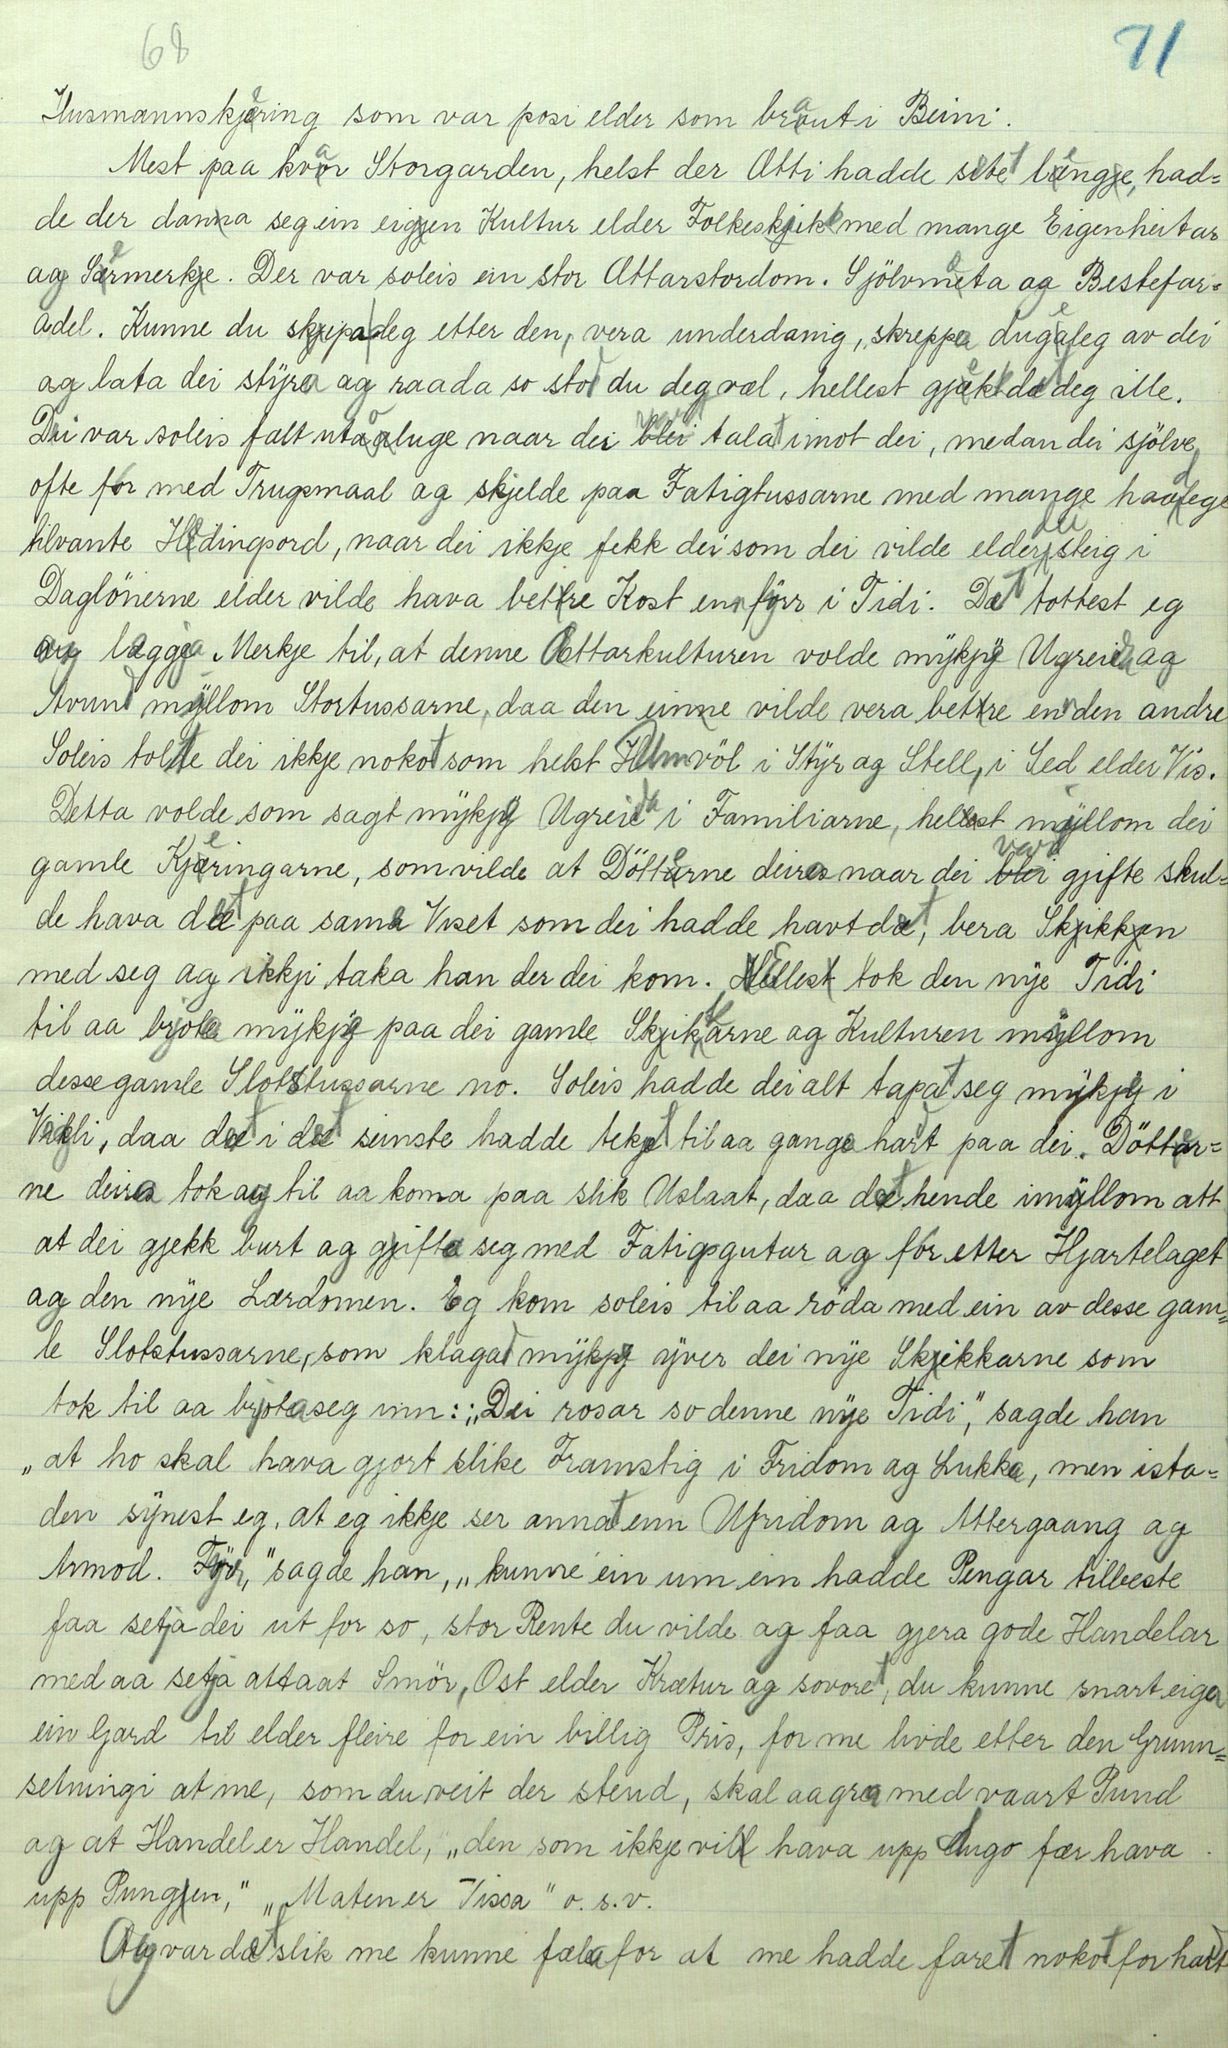 68
71
Husmannskjæring som var posi elder som braut i Beini.
Mest paa kvar Storgarden, helst der Ætti hadde sitet længje, had=
de der danna seg ein eigjen Kultur elder Folkeskjik med mange Eigenheitar
ag Særmerkje. Der var soleis ein stor Ættarstordom. Sjölvmæta ag Bestefar=
adel. Kunne du skjepa deg etter den, vera underdanig, skreppa dugeleg av dei
ag lata dei stÿra ag raada so stod du deg væl, hellest gjekk det deg ille.
Dei var soleis falt utaaluge naar dei vart talat imot dei, medan dei sjölve
ofte for med Trugsmaal ag skjelde paa Fatigtussarne med mange haadlege
tilvante Hedingsord, naar dei ikkje fekk dei som dei vilde elder dei steig i
Daglönerne elder vilde hava betre Kost enn fÿrr i Tidi. Det tottest eg
ag leggja Merkje til, at denne Ættarkulturen volde mÿkjÿ Ugreida ag
Avund mÿllom Stortussarne, daa den eine vilde vera betre enn den andre
Soleis tolte dei ikkje nokot som helst Umvöl i Stÿr ag Stell, i Sed elder Vis.
Detta volde som sagt mÿkjÿ Ugreida i Familiarne, helst mÿllom dei
gamle Kjeringarne, som vilde at Dötterne deires naar dei vart gjifte skul=
de hava det paa sama Viset som dei hadde havt det, bera Skjikkjen
med seg ag ikkji taka han der dei kom. Ellest tok den nÿe Tidi
til aa brjota mÿkjÿ paa dei gamle Skjikkarne ag Kulturen mÿllom
desse gamle Slotstussarne no. Soleis hadde dei alt tapat seg mÿkjÿ i
Vikli, daa det i det seinste hadde tekjet til aa ganga hardt paa dei. Dötter=
ne deira tok ag til aa koma paa slik Uslaat, daa det hende imÿllom att
at dei gjekk burt ag gjifta seg med Fatigsgutar ag for etter Hjartelaget
ag den nÿe Lærdomen. Eg kom soleis til aa röda med ein av desse gam=
le Slotstussarne, som klagad mÿkjÿ ÿver dei nÿe Skjikkarne som
tok til aa brjota seg inn: „Dei rosar so denne nÿe Tidi," sagde han
„at ho skal hava gjort slike Framstig i Fridom ag Lukka, men ista=
den sÿnest eg, at eg ikkje ser annat enn Ufridom ag Attergaang ag
Armod. Fÿrr," sagde han, „kunne ein um ein hadde Pengar tilbeste
faa setja dei ut for so, stor Rente du vilde ag faa gjera gode Handelar
med aa setja attaat Smör, Ost elder Krætur ag sovoret, du kunne snart eiga
ein Gard til elder fleire for ein billig Pris, for me livde etter den Grunn=
setningi at me, som du veit der stend, skal aagra med vaart Pund
ag at Handel er Handel, „den som ikkje vil hava upp Augo fær hava
upp Pungjen," „Maten er Vissa" o. s. v.
Ag var det slik me kunne fæla for at me hadde faret nokot for hardt